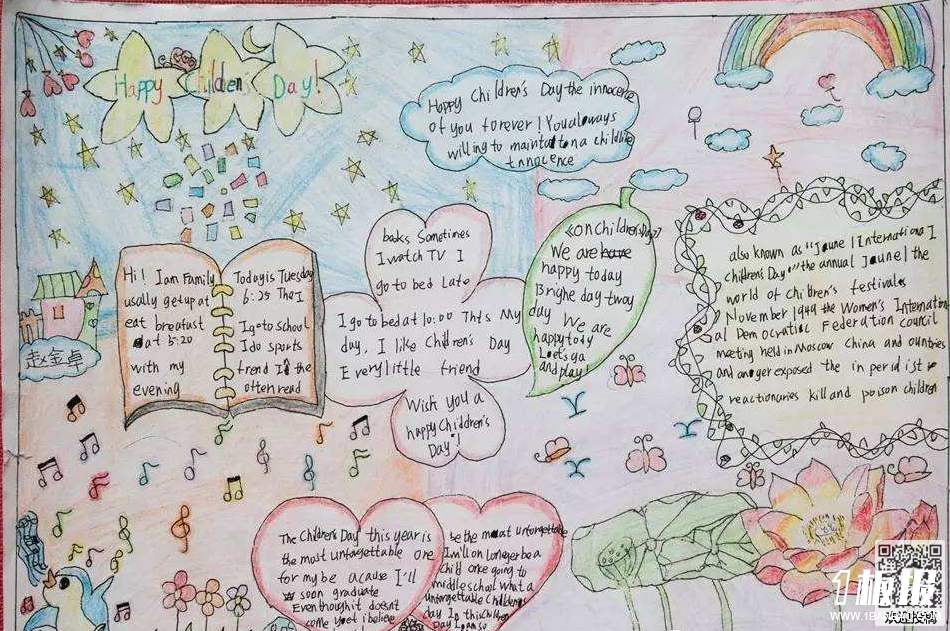 Happy Children's Day!
Happy Children's Day the innocence
of you forever! You always
willing to maintain a childlike
innocence
Hi! I am Family
usally get up at
eat breafast
at 5:20
with my
evening
Today is Tuesday
6:25 The I
I go to school
I do sports
frend
often read
books Sometimes
I watch TV I
go to bed Late
I go to bed at 10:00 This My
day, I like Children's Day
Every little friend
Wish you a
happy Children's
Day!
《on Children's Day》
We are
happy today
day
We are
happy tody
Let's go
and play!
also known as "June 1 International
Children's Day" the annual June 1 the
world of Children's festivales
November 1949 the Women's Internation
al Democratic Federation council
meeting held in Moscow China and countries
and anger exposed the
reactionaries kill and poison children
赵金卓
The Children's Day this year is
the most unforgettable one
for my be acause I'll
soon graduate
Even though it doesn't
come yet i believe
be the most unforgettable
I will on longer be a
child going to
middle school What a
unforgettable Children's
day In this Children
1板报
WWW.1BANBAO.COM